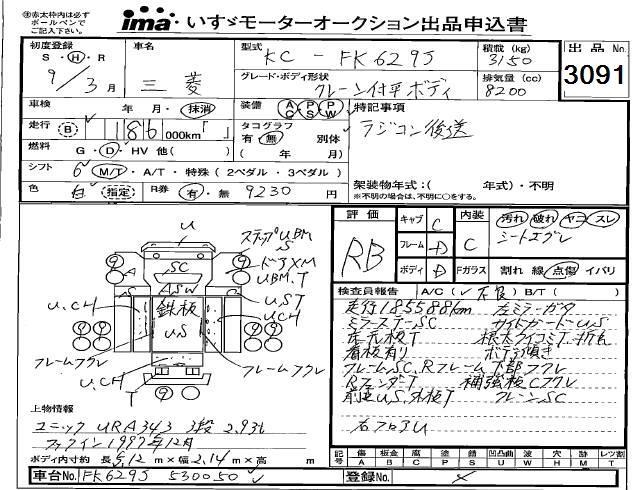 ※赤太枠内は必ず
ボールペンで
ご記入下さい。
ima いすゞモーターオークション出品申込書
初度登録
S・H・R
9/3月
車名
三菱
型式
KC-FK629J
積載(kg)
3150
出品No.
3091
グレード・ボディ形状
クレーン付平ボディ
排気量(cc)
8200
車検
年 月・抹消
装備
AC PS PW
特記事項
ラジコン後送
走行
B
186 000km
タコグラフ
有・無 別体
( 年 月)
燃料
G・D・HV 他( )
シフト
6 M/T・A/T・特殊(2ペダル・3ペダル)
架装物年式:( 年式)・不明
※不明の場合は、不明に○をする。
色
白 指定
R券
有・無 9230 円
評価
RB
キャブ C
フレーム D
ボディ D
内装
C
Fガラス
汚れ 破れ ヤニ スレ
シートエグレ
割れ 線 点傷 イバリ
検査員報告
A/C( 不良 )B/T( )
走行185588km 左ミラーガタ
ミラーステーSC サイドガードUS
床元板T 根太クイコミT.朽ち
看板有り ボデーヨ傾き
フレームSC、Rフレーム下部フクレ
RフェンダーT 補強板Cフクレ
前廻US、外板T クレーンSC
右フロアU
U
ステップUBM
S
ドアXM
UBM.T
SC
A
ASW
S
UST
U.CH
鉄板
US
UCH
フレームフクレ
フレームフクレ
U.CH
T
上物情報
ユニック URA343 3段 2.93t
ファイン1997年12月
ボディ内寸約 長 5.12 m×幅 2.14 m×高 m
車台No. FK629J 530050
記号
傷 A
板金 B
腐 C
塗 P
錆 S
凹凸曲 U
波 W
穴 H
跡 M
レンズ割 T
登録No.